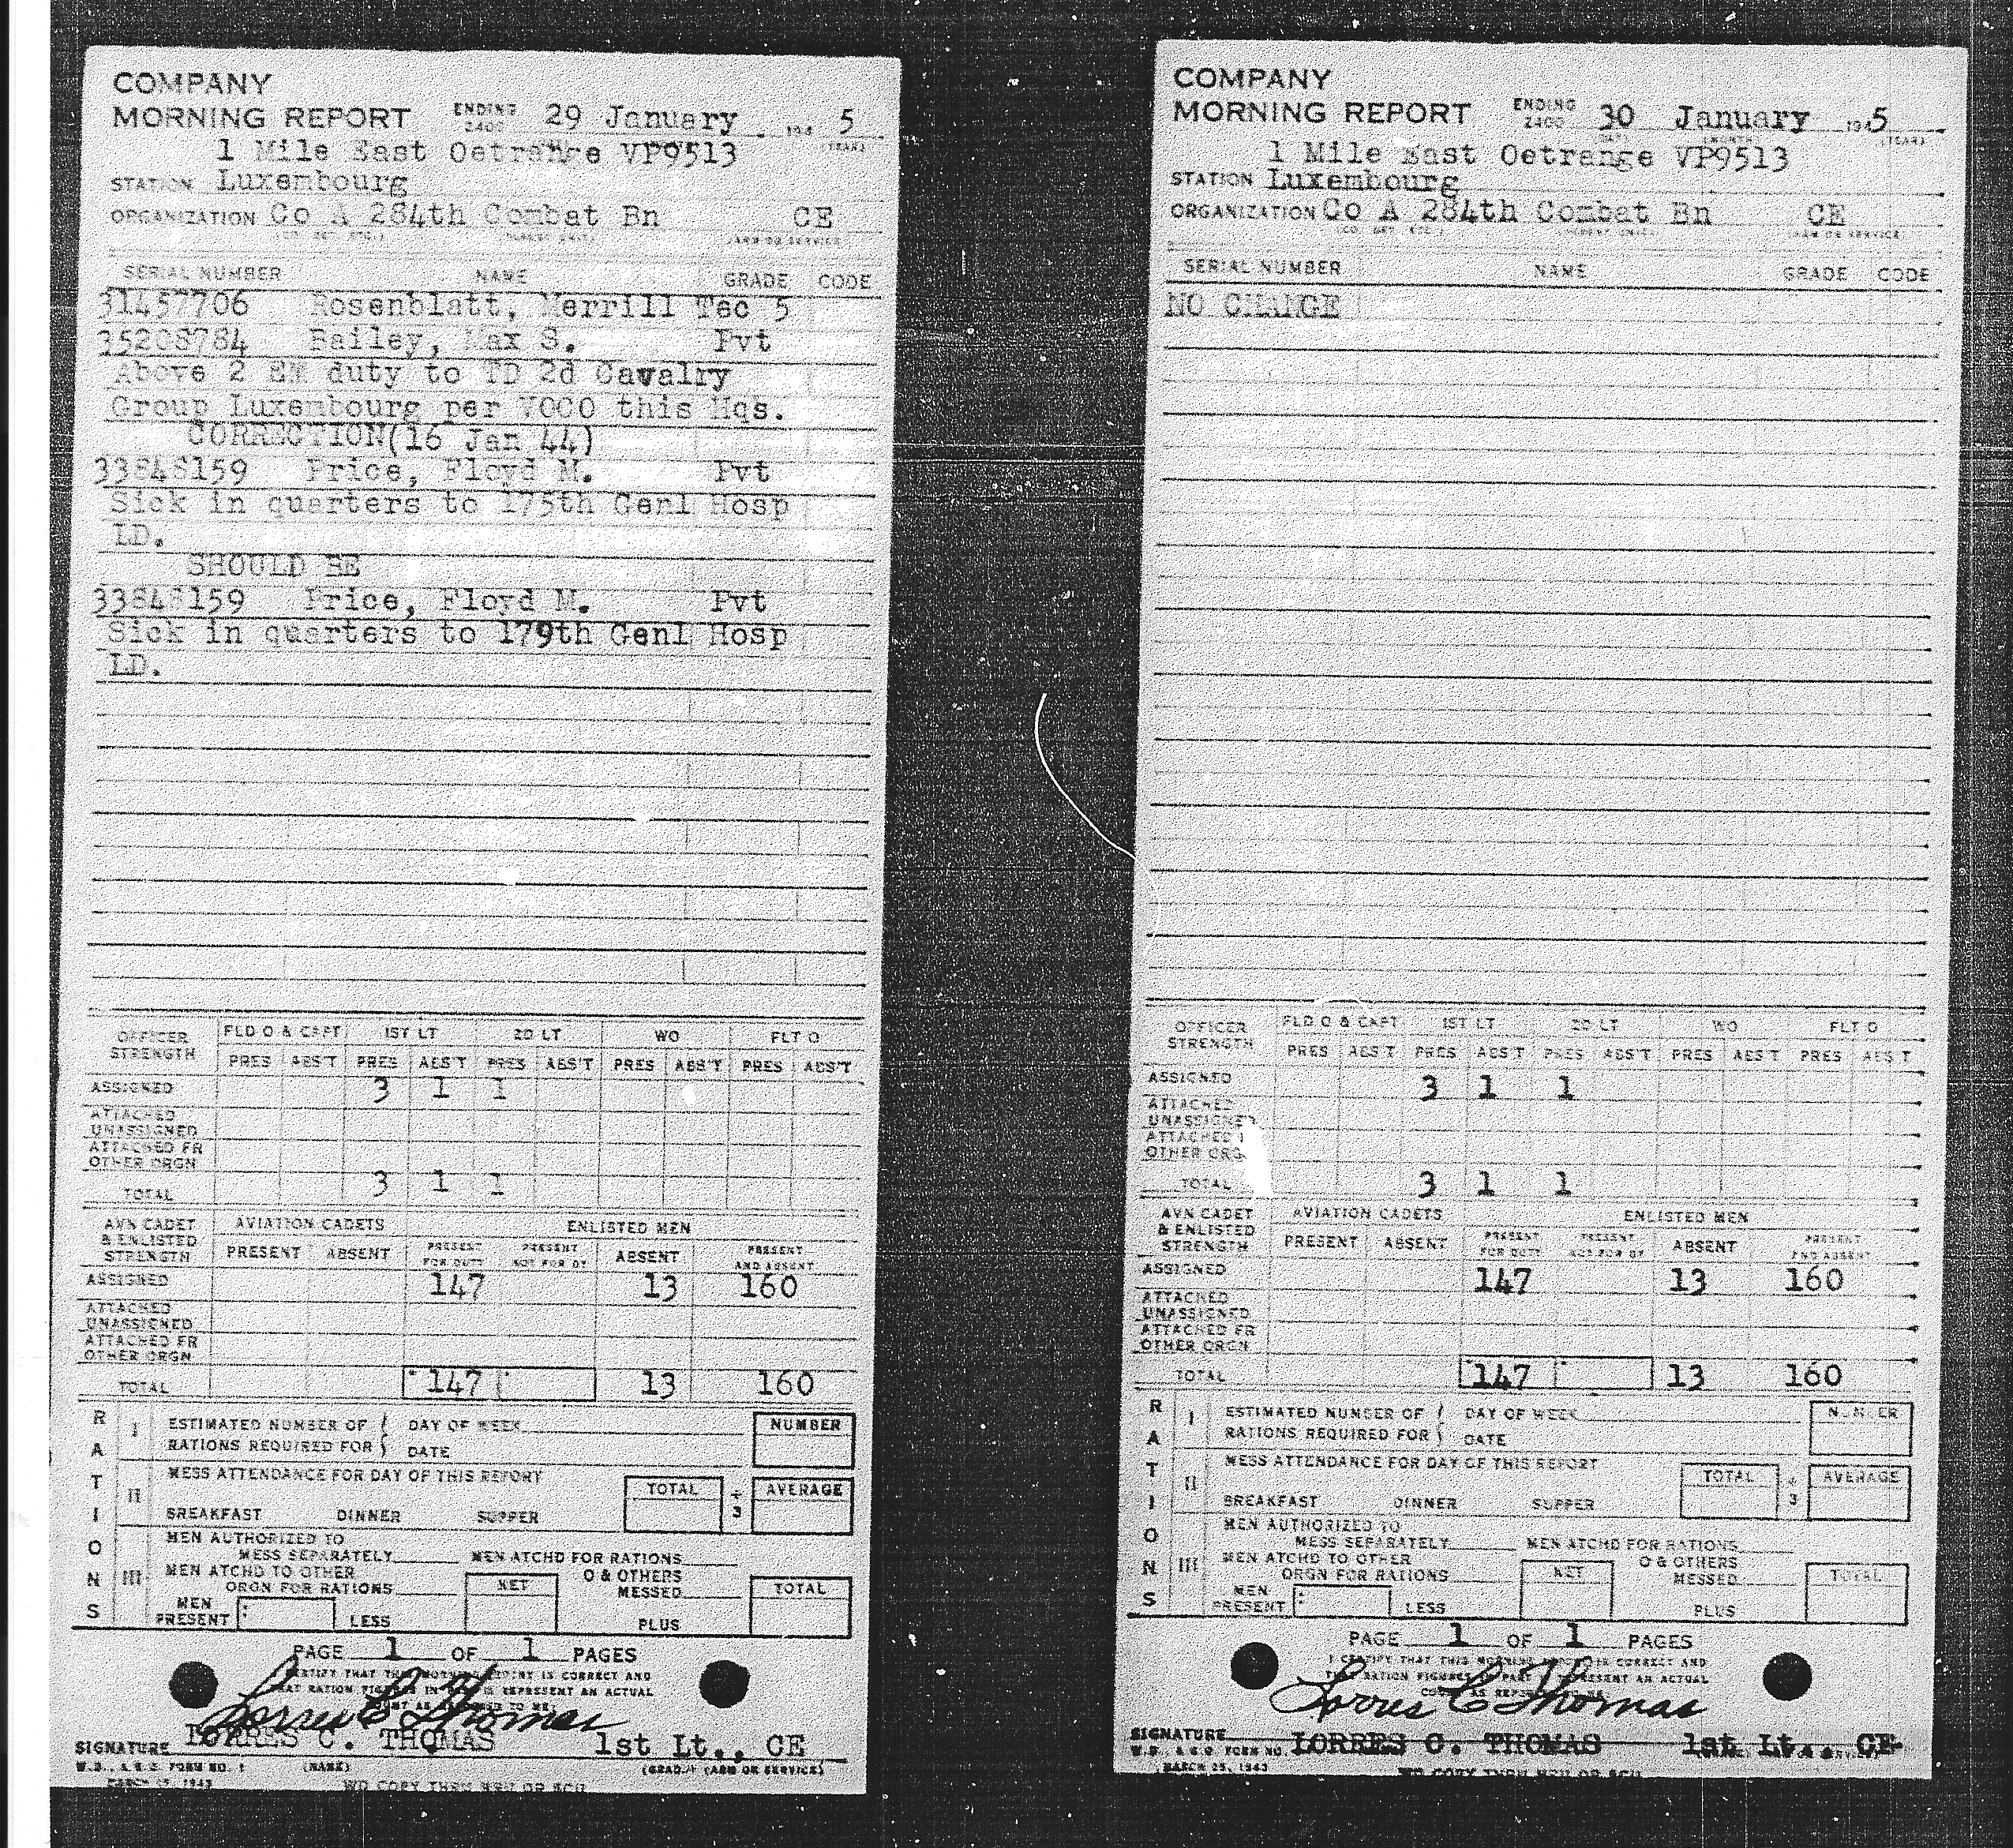 COMPANY
MORNING REPORT ENDING 2400 29 January 194 5
1 Mile East Oetrange VP9513
STATION Luxembourg
ORGANIZATION Co A 284th Combat Bn CE
SERIAL NUMBER NAME GRADE CODE
31457706 Rosenblatt, Merrill Tec 5
35208784 Bailey, Max S. Pvt
Above 2 EM duty to TD 2d Cavalry
Group Luxembourg per VOCO this Hqs.
CORRECTION(16 Jan 44)
33848159 Price, Floyd M. Pvt
Sick in quarters to 175th Genl Hosp
LD.
SHOULD BE
33848159 Price, Floyd M. Pvt
Sick in quarters to 179th Genl Hosp
LD.
OFFICER STRENGTH FLD O & CAPT 1ST LT 2D LT WO FLT O
PRES ABS'T PRES ABS'T PRES ABS'T PRES ABS'T PRES ABS'T
ASSIGNED 3 1 1
ATTACHED
UNASSIGNED
ATTACHED FR
OTHER ORGN
TOTAL 3 1 1
AVN CADET & ENLISTED STRENGTH AVIATION CADETS ENLISTED MEN
PRESENT ABSENT PRESENT FOR DUTY PRESENT NOT FOR DY ABSENT PRESENT AND ABSENT
ASSIGNED 147 13 160
ATTACHED
UNASSIGNED
ATTACHED FR
OTHER ORGN
TOTAL 147 13 160
RATIONS
I ESTIMATED NUMBER OF DAY OF WEEK NUMBER
RATIONS REQUIRED FOR DATE
II MESS ATTENDANCE FOR DAY OF THIS REPORT TOTAL ÷ 3 AVERAGE
BREAKFAST DINNER SUPPER
III MEN AUTHORIZED TO
MESS SEPARATELY MEN ATCHD FOR RATIONS
MEN ATCHD TO OTHER O & OTHERS
ORGN FOR RATIONS NET MESSED TOTAL
MEN PRESENT LESS PLUS
PAGE 1 OF 1 PAGES
CERTIFY THAT THIS MORNING REPORT IS CORRECT AND
THAT RATION FIGURES IN PART REPRESENT AN ACTUAL
COUNT AS TO ME
Lorres C Thomas
SIGNATURE LORRES C. THOMAS 1st Lt., CE
W.D., A.G.O. FORM NO. 1 (NAME) (GRADE) (ARM OR SERVICE)
MARCH 25, 1943 WD COPY THRU MRU OR SCU
COMPANY
MORNING REPORT ENDING 2400 30 January 1945
1 Mile East Oetrange VP9513
STATION Luxembourg
ORGANIZATION Co A 284th Combat Bn CE
SERIAL NUMBER NAME GRADE CODE
NO CHANGE
OFFICER STRENGTH FLD O & CAPT 1ST LT 2D LT WO FLT O
PRES ABS'T PRES ABS'T PRES ABS'T PRES ABS'T PRES ABS'T
ASSIGNED 3 1 1
ATTACHED
UNASSIGNED
ATTACHED
OTHER ORG
TOTAL 3 1 1
AVN CADET & ENLISTED STRENGTH AVIATION CADETS ENLISTED MEN
PRESENT ABSENT PRESENT FOR DUTY PRESENT NOT FOR DY ABSENT PRESENT AND ABSENT
ASSIGNED 147 13 160
ATTACHED
UNASSIGNED
ATTACHED FR
OTHER ORGN
TOTAL 147 13 160
RATIONS
I ESTIMATED NUMBER OF DAY OF WEEK NUMBER
RATIONS REQUIRED FOR DATE
II MESS ATTENDANCE FOR DAY OF THIS REPORT TOTAL ÷ 3 AVERAGE
BREAKFAST DINNER SUPPER
III MEN AUTHORIZED TO
MESS SEPARATELY MEN ATCHD FOR RATIONS
MEN ATCHD TO OTHER O & OTHERS
ORGN FOR RATIONS NET MESSED TOTAL
MEN PRESENT LESS PLUS
PAGE 1 OF 1 PAGES
I CERTIFY THAT THIS MORNING REPORT IS CORRECT AND
THAT RATION FIGURES IN PART REPRESENT AN ACTUAL
Lorres C Thomas
SIGNATURE LORRES C. THOMAS 1st Lt., CE
W.D., A.G.O. FORM NO.
MARCH 25, 1943 WD COPY THRU MRU OR SCU